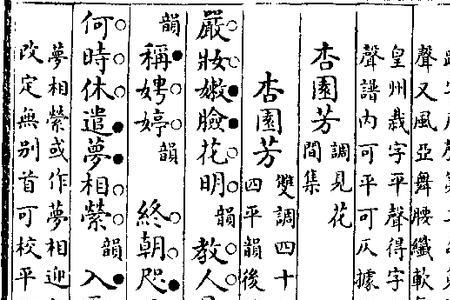 聲又風亞舞腰纖軟
皇州栽字平聲得字
聲譜內可平可仄據
杏園芳 調見花
間集
杏園芳 雙調四十
四平韻後
嚴妝嫩臉花明韻 教人
韻 稱娉婷韻 終朝咫
何時休遣夢相縈韻入
夢相縈或作夢相迎
改定無別首可校平